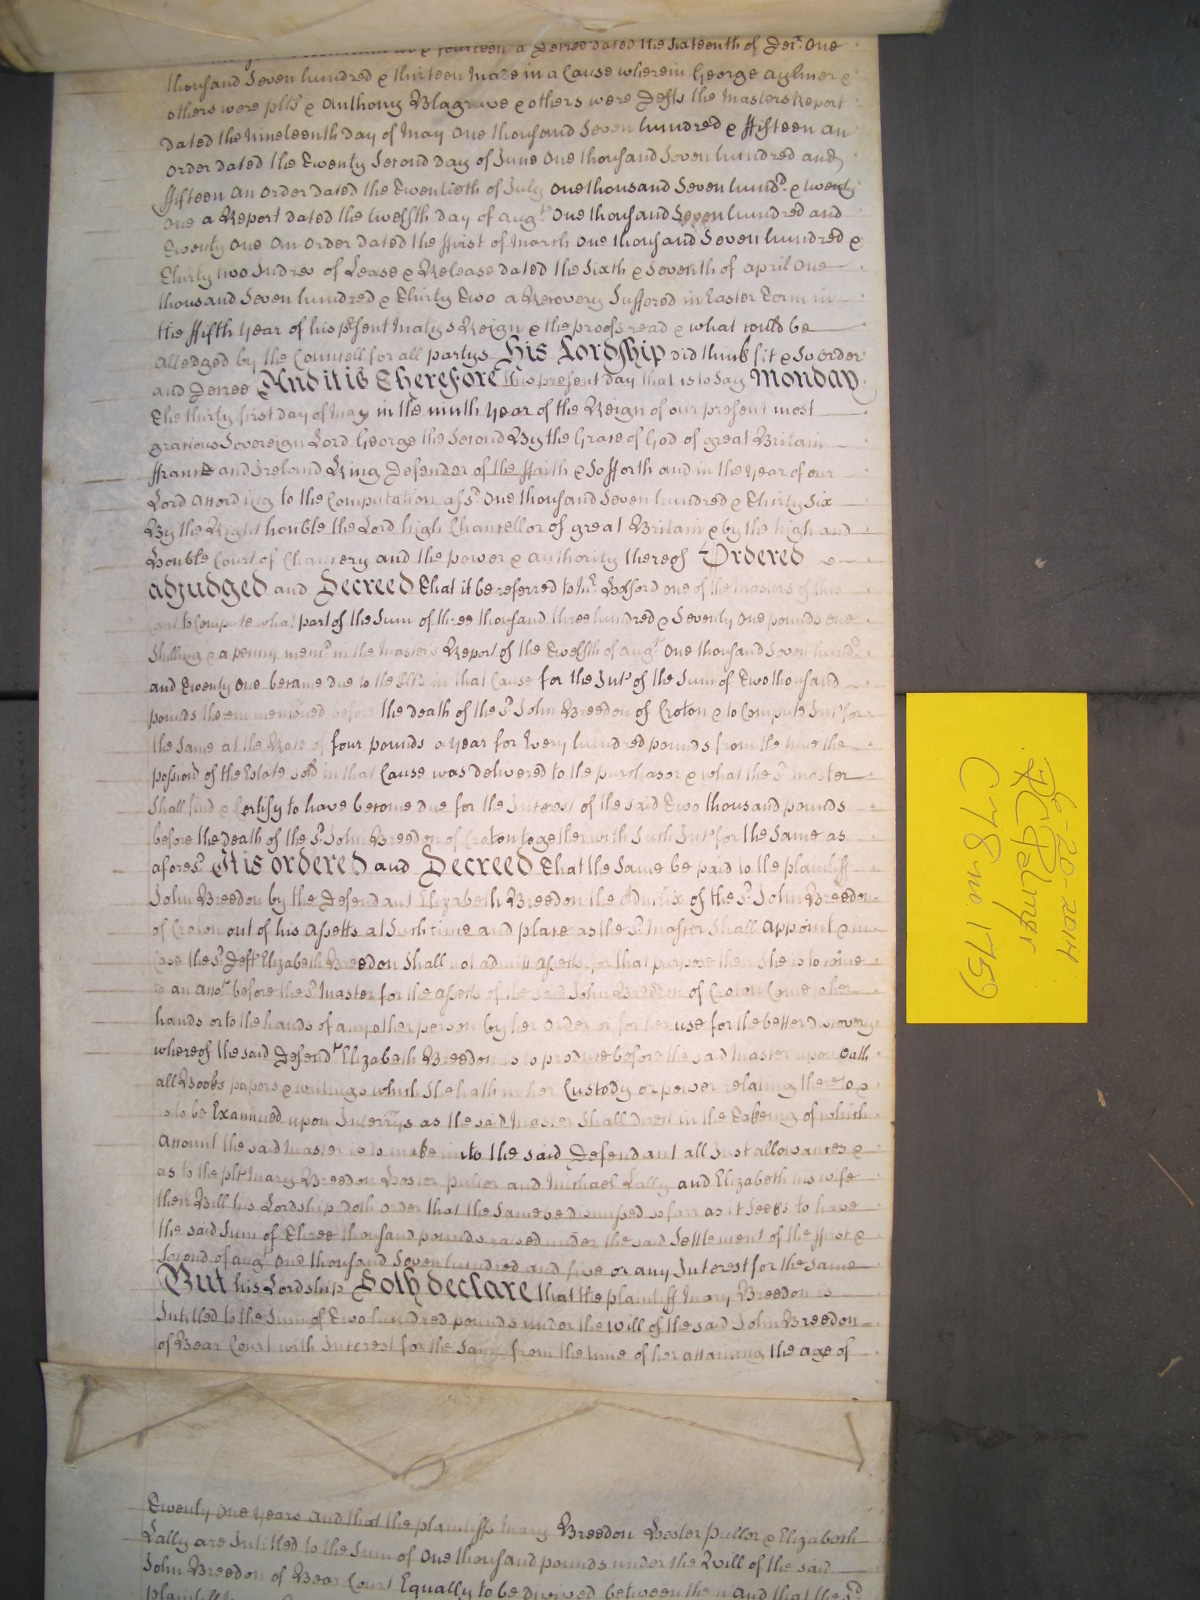 & fourteen a Decree dated the Sixteenth of Decr. One
thousand Seven hundred & thirteen made in a Cause wherein George Aylmer &
others were pltts & Anthony Blagrave & others were Defts the Masters Report
dated the Nineteenth day of May One thousand Seven hundred & ffifteen an
order dated the Twenty Second day of June One thousand Seven hundred and
ffifteen an order dated the Twentieth of July One thousand Seven hundd. & twenty
one a Report dated the twelfth day of augt. One thousand Seven hundred and
Twenty One an order dated the ffirst of March One thousand Seven hundred &
Thirty two Indres of Lease & Release dated the Sixth & Seventh of april One
thousand Seven hundred & Thirty Two a Recovery Suffered in Easter Term in
the ffifth year of his psent Matys Reign & the proofs read & what could be
alledged by the Councell for all partys His Lordship did think fit & so order
and Decree And it is Therefore this present day that is to Say Monday
the thirty first day of May in the ninth year of the Reign of our present most
gracious Sovereign Lord George the Second By the Grace of God of great Britain
ffrance and Ireland King Defender of the ffaith & So fforth and in the year of our
Lord according to the Computation afsd. One thousand Seven hundred & Thirty Six
By the Right honble the Lord high Chancellor of great Britain & by the high and
honble Court of Chancery and the power & authority thereof Ordered
adjudged and Decreed that it be referred to Mr. one of the Masters of this
Court to Compute what part of the Sum of three thousand three hundred & Seventy One pounds one
Shilling & a penny mencd. in the Master's Report of the Twelfth of augt. One thousand Seven hundd.
and Twenty One became due to the pltts in that Cause for the Intt of the Sum of Two thousand
pounds therein mentioned before the death of the sd. John Breedon of Croton & to Compute Intt for
the Same at the Rate of four pounds a year for Every hundred pounds from the time the
possion of the Estate sold in that Cause was delivered to the purchasor & what the sd. Master
Shall find & Certify to have become due for the Interest of the said Two thousand pounds
before the death of the sd. John Breedon of Croton together with Such Intt for the Same as
aforesd. It is ordered and Decreed that the Same be paid to the plaintiff
John Breedon by the Defendant Elizabeth Breedon the Admix of the sd. John Breedon
of Croton out of his assetts at Such time and place as the sd. Master Shall appoint & in
Case the sd. Deft. Elizabeth Breedon Shall not admitt assetts for that purpose then She is to come
to an acct. before the sd. Master for the assetts of the said John Breedon of Croton Come to her
hands or to the hands of any other person by her order or for her use for the better discovery
whereof the said Defendt Elizabeth Breedon is to produce before the said Master upon Oath
all Books papers & writings which She hath in her Custody or power relating thereto &
is to be Examined upon Interrys as the said Master Shall direct in the Takeing of which
Account the said Master is to make unto the said Defendant all Just allowances &
as to the plt Mary Breedon Hester and Michael Lally and Elizabeth his wife
their Bill his Lordship doth order that the Same be dismissed so farr as it Seeks to have
the said Sum of Three thousand pounds raised under the said Settlement of the ffirst &
Second of augt. One thousand Seven hundred and five or any Interest for the Same
But his Lordship Doth declare that the plaintiff Mary Breedon is
Intitled to the Sum of Two hundred pounds under the will of the said John Breedon
of Bear Court with Interest for the Same from the time of her attaining the age of
Twenty One years and that the plaintiffs Mary Breedon Hester & Elizabeth
Lally are Intitled to the Sum of One thousand pounds under the Will of the said
John Breedon of Bear Court Equally to be divided between them And that the sd
26-20-2014
C78 no 1759